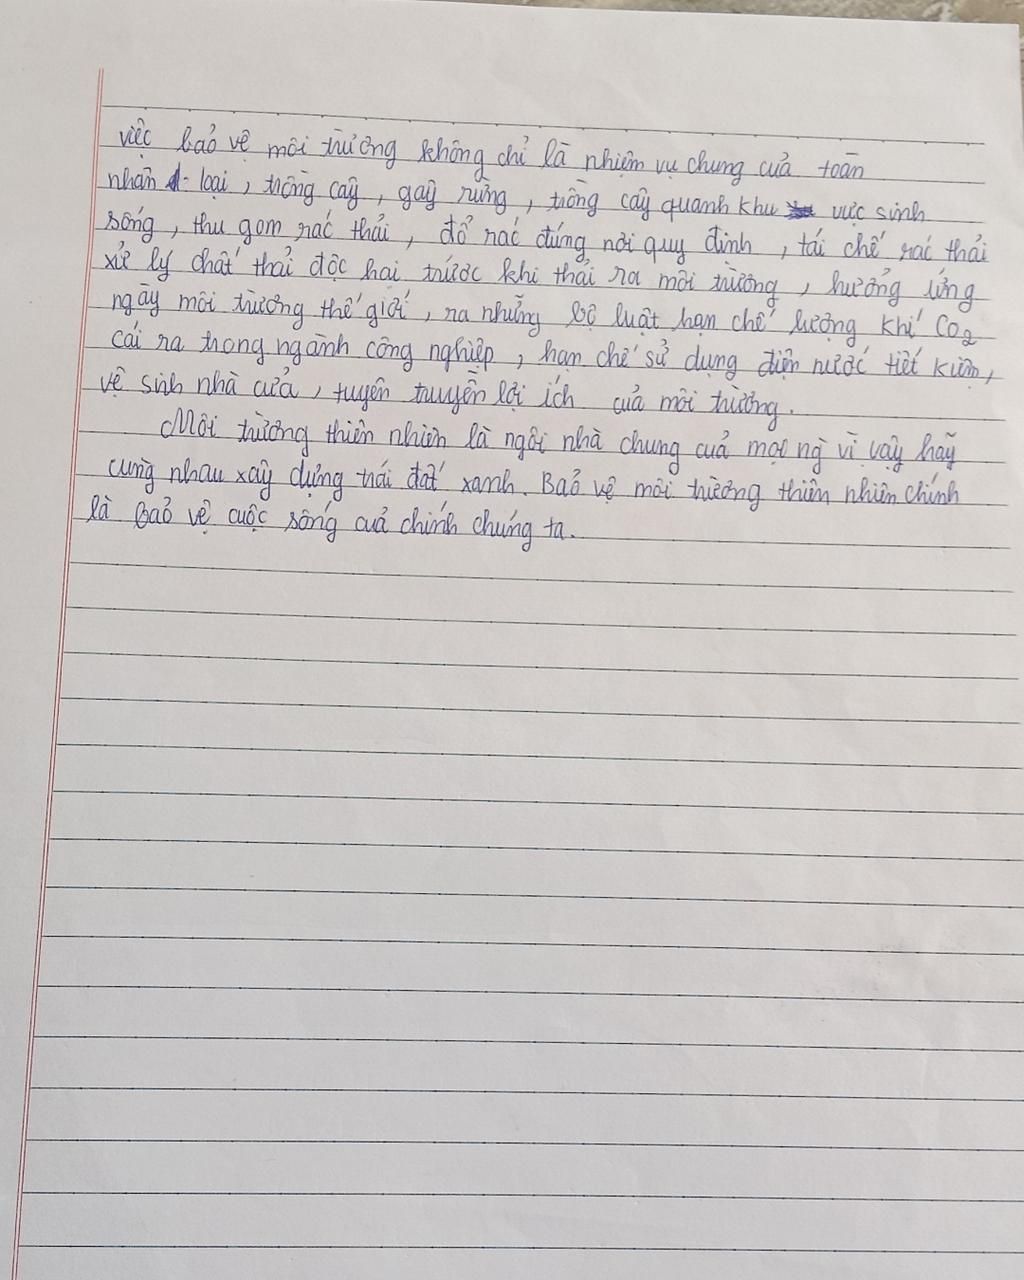 việc bảo vệ môi trường không chỉ là nhiệm vụ chung của toàn
nhân loại, trồng cây, gây rừng, trồng cây quanh khu vực sinh
sống, thu gom rác thải, đổ rác đúng nơi quy định, tái chế rác thải
xử lý chất thải độc hại trước khi thải ra môi trường, hưởng ứng
ngày môi trường thế giới, ra những bộ luật hạn chế lượng khí Co2
cái ra trong ngành công nghiệp, hạn chế sử dụng điện nước tiết kiệm,
vệ sinh nhà cửa, tuyên truyền lợi ích của môi trường.
Môi trường thiên nhiên là ngôi nhà chung của mọi ng vì vậy hãy
cùng nhau xây dựng trái đất xanh. Bảo vệ môi trường thiên nhiên chính
là bảo vệ cuộc sống của chính chúng ta.